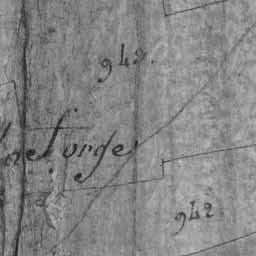 949.
ne forge
942